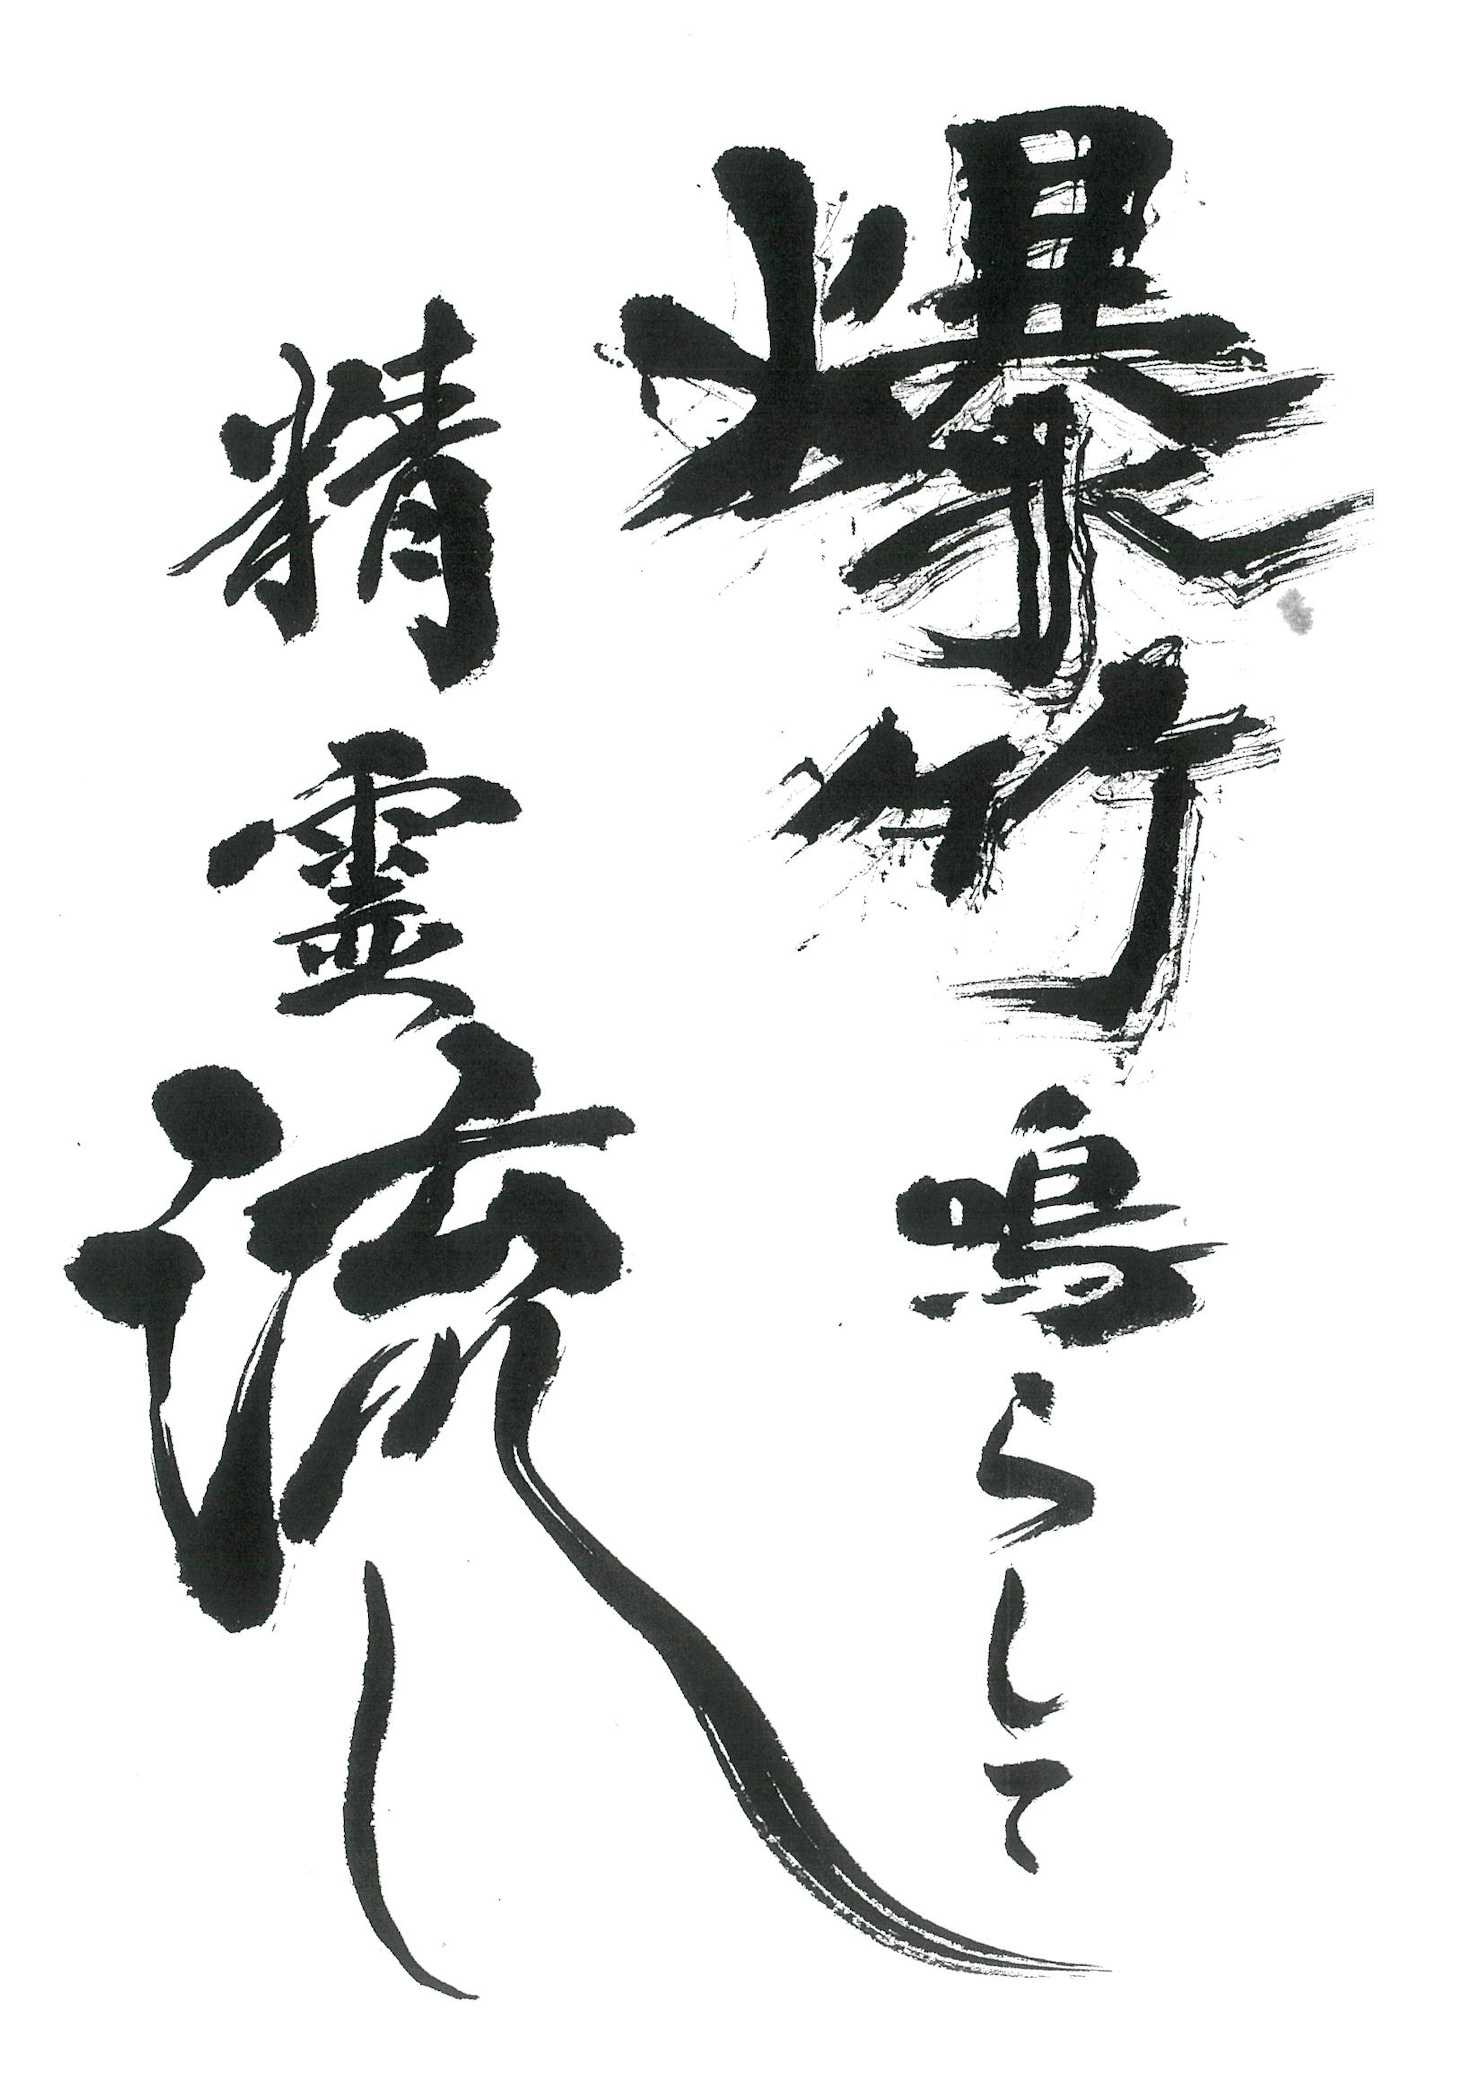 爆竹鳴らして
精霊流し